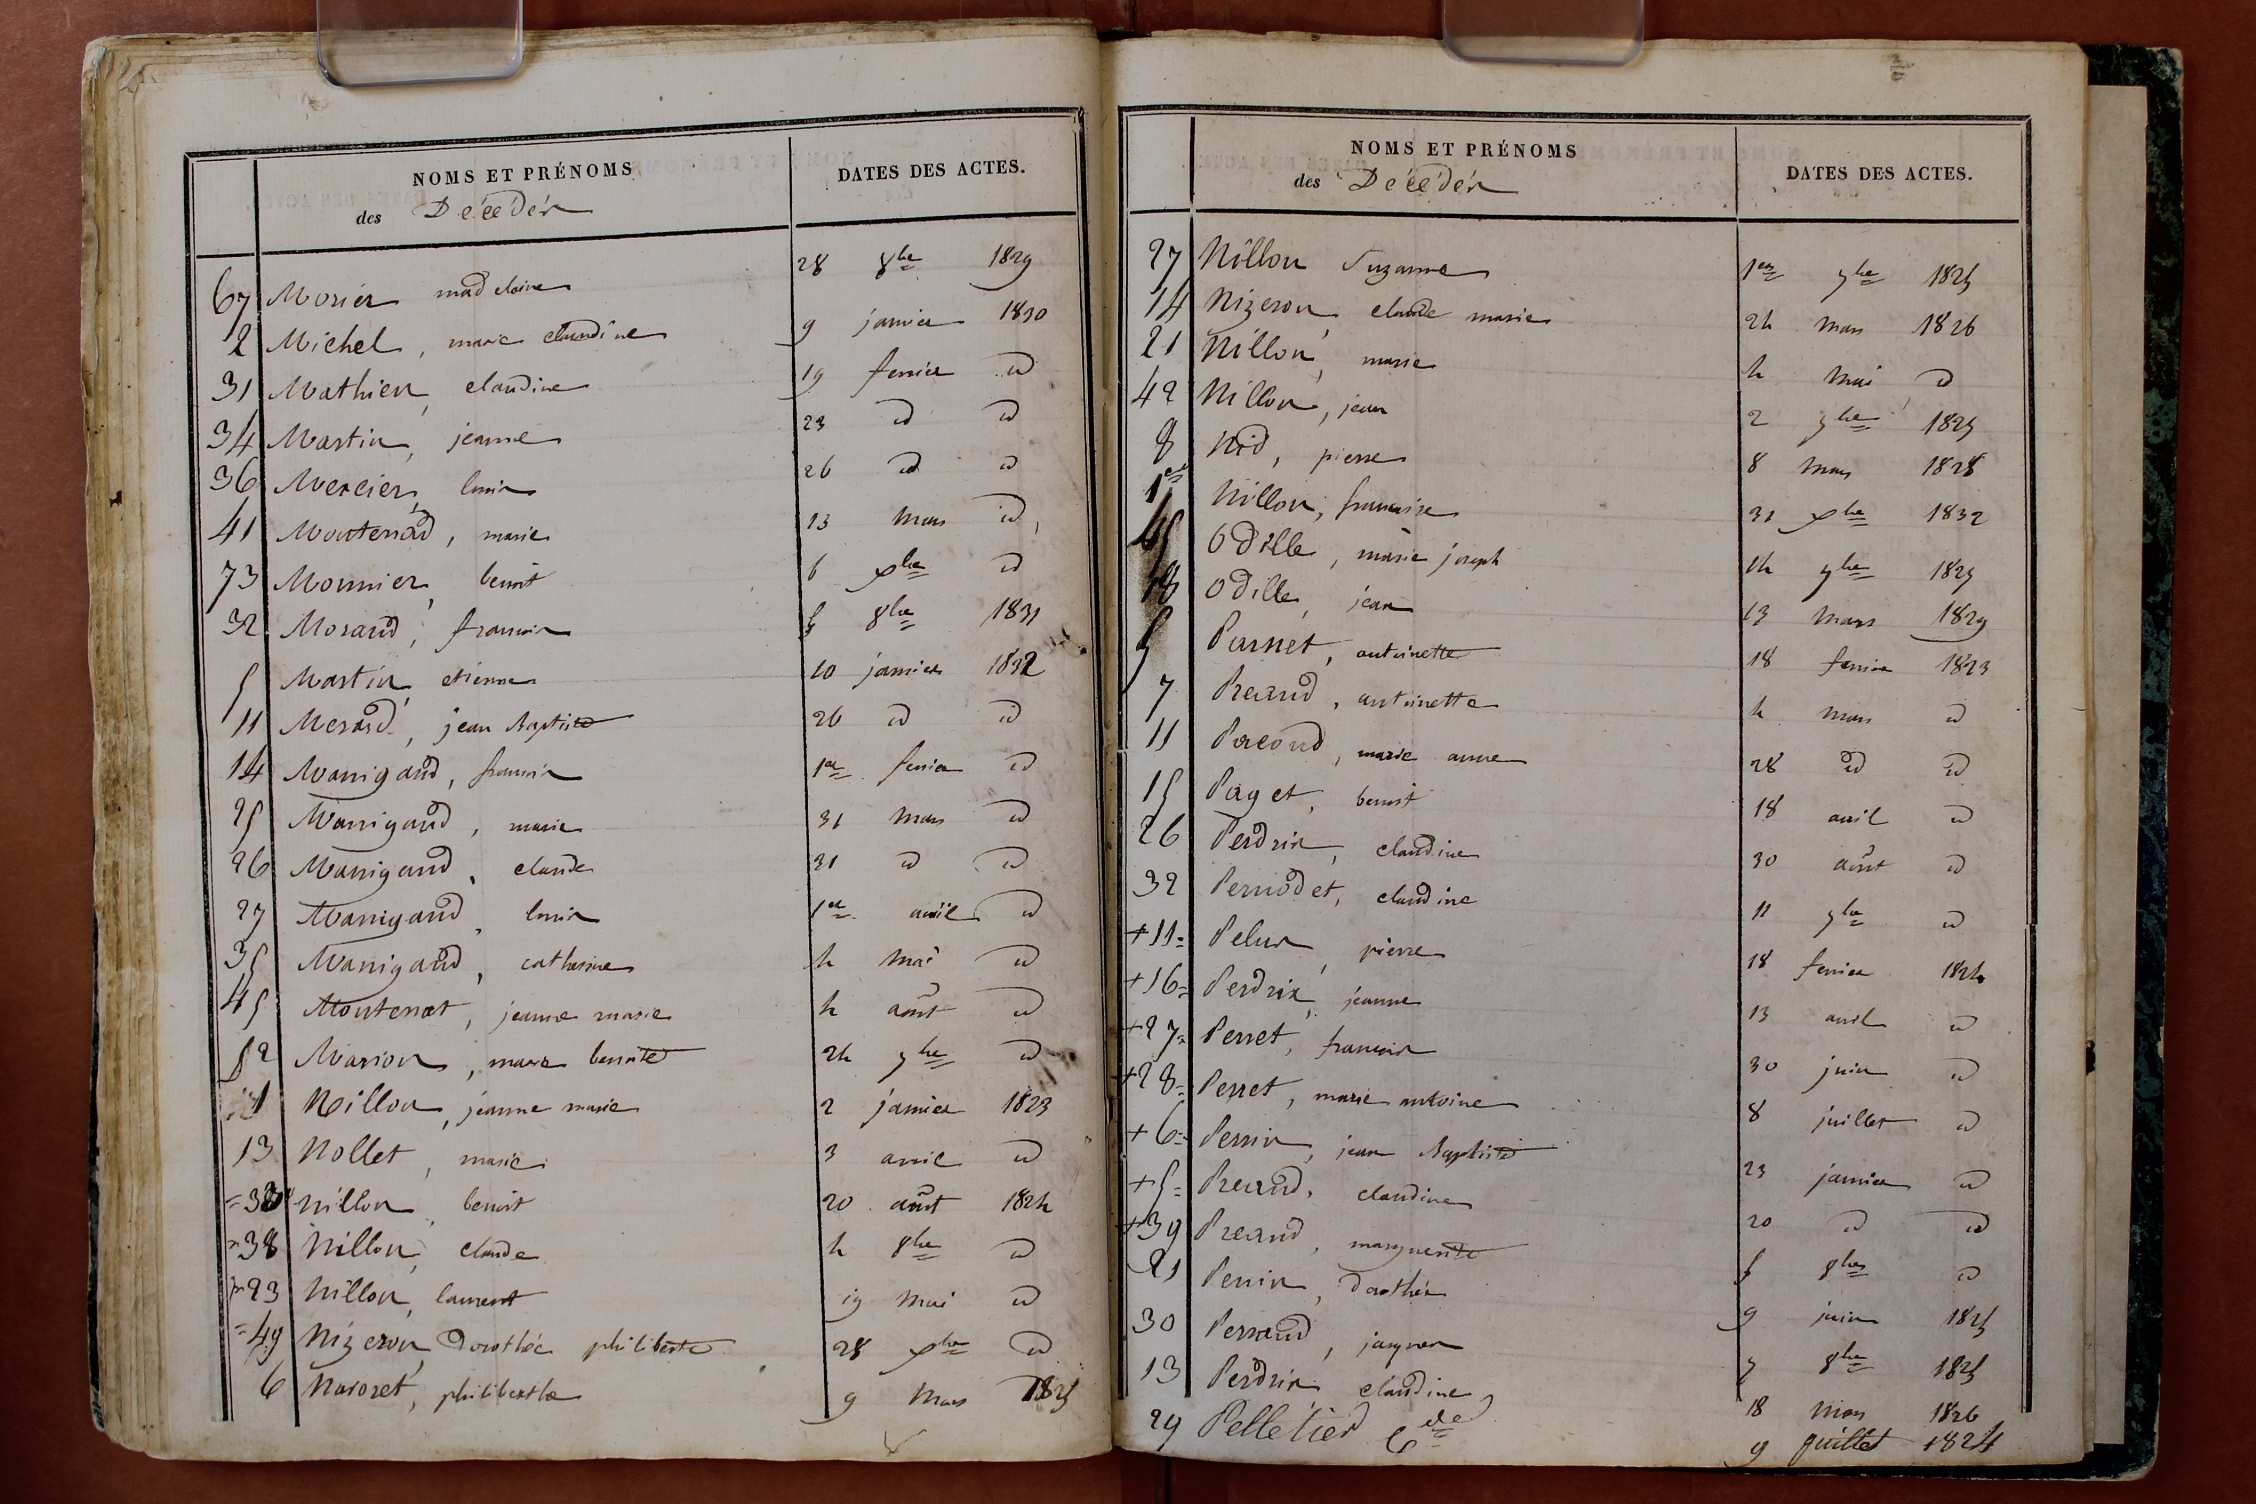 NOMS ET PRÉNOMS
des Décédés
DATES DES ACTES.
67 Morier madelaine 28 8bre 1829
2 Michel, marie claudine 9 janvier 1830
31 Mathieu, claudine 19 fevrier id
34 Martin, jeanne 23 id id
36 Mercier, louis 26 id id
41 Montenard, marie 13 mars id
73 Monnier, benoit 6 xbre id
32 Morand, francois 5 8bre 1831
5 Martin, etienne 10 janvier 1832
11 Merard, jean Baptiste 26 id id
14 Manigand, francois 1er fevrier id
25 Manigand, marie 31 mars id
26 Manigand, claude 31 id id
27 Manigand, louis 1er avril id
35 Manigand, catherine 4 mai id
45 Montenot, jeanne marie 4 août id
52 Marion, marie benoite 24 9bre id
1 Nillon, jeanne marie 2 janvier 1823
13 Nollet, marie 3 avril id
nillon, benoit 20 août 1824
=38 Nillon, claude 4 8bre id
=23 Nillon, laurent 19 mai id
=49 Nizeron, Dorothée philiberte 28 xbre id
6 Naroret, philiberthe 9 Mars 1825
NOMS ET PRÉNOMS
des Décédés
DATES DES ACTES.
27 Nillon Suzanne 1er 9bre 1825
14 Nizeron, claude marie 24 mars 1826
21 Nillon, marie 4 mai id
42 Nillon, jean 2 9bre 1825
8 Nid, pierre 8 mars 1828
1er Nillon, francoise 31 xbre 1832
45 Odille, marie joseph 14 9bre 1825
18 Odille, jean 13 mars 1829
5 Parnet, antoinette 18 fevrier 1823
7 Preaud, antoinette 4 mars id
11 Pacoud, marie anne 28 id id
15 Paget, benoit 18 avril id
26 Perdrix, claudine 30 août id
32 Pernodet, claudine 11 9bre id
+11= Pelus, pierre 18 fevrier 1824
+16= Perdrix, jeanne 13 avril id
+27= Perret, francois 30 juin id
+28= Perret, marie antoine 8 juillet id
+6= Perrin, jean Baptiste 23 janvier id
+5= Preaud, claudine 20 id id
+39 Preaud, marguerite 5 8bre id
21 Perrin, dorothée 9 juin 1825
30 Perraud, jacques 7 8bre 1825
13 Perdrix, claudine 18 mars 1826
29 Pelletier Cde 9 juillet 1824